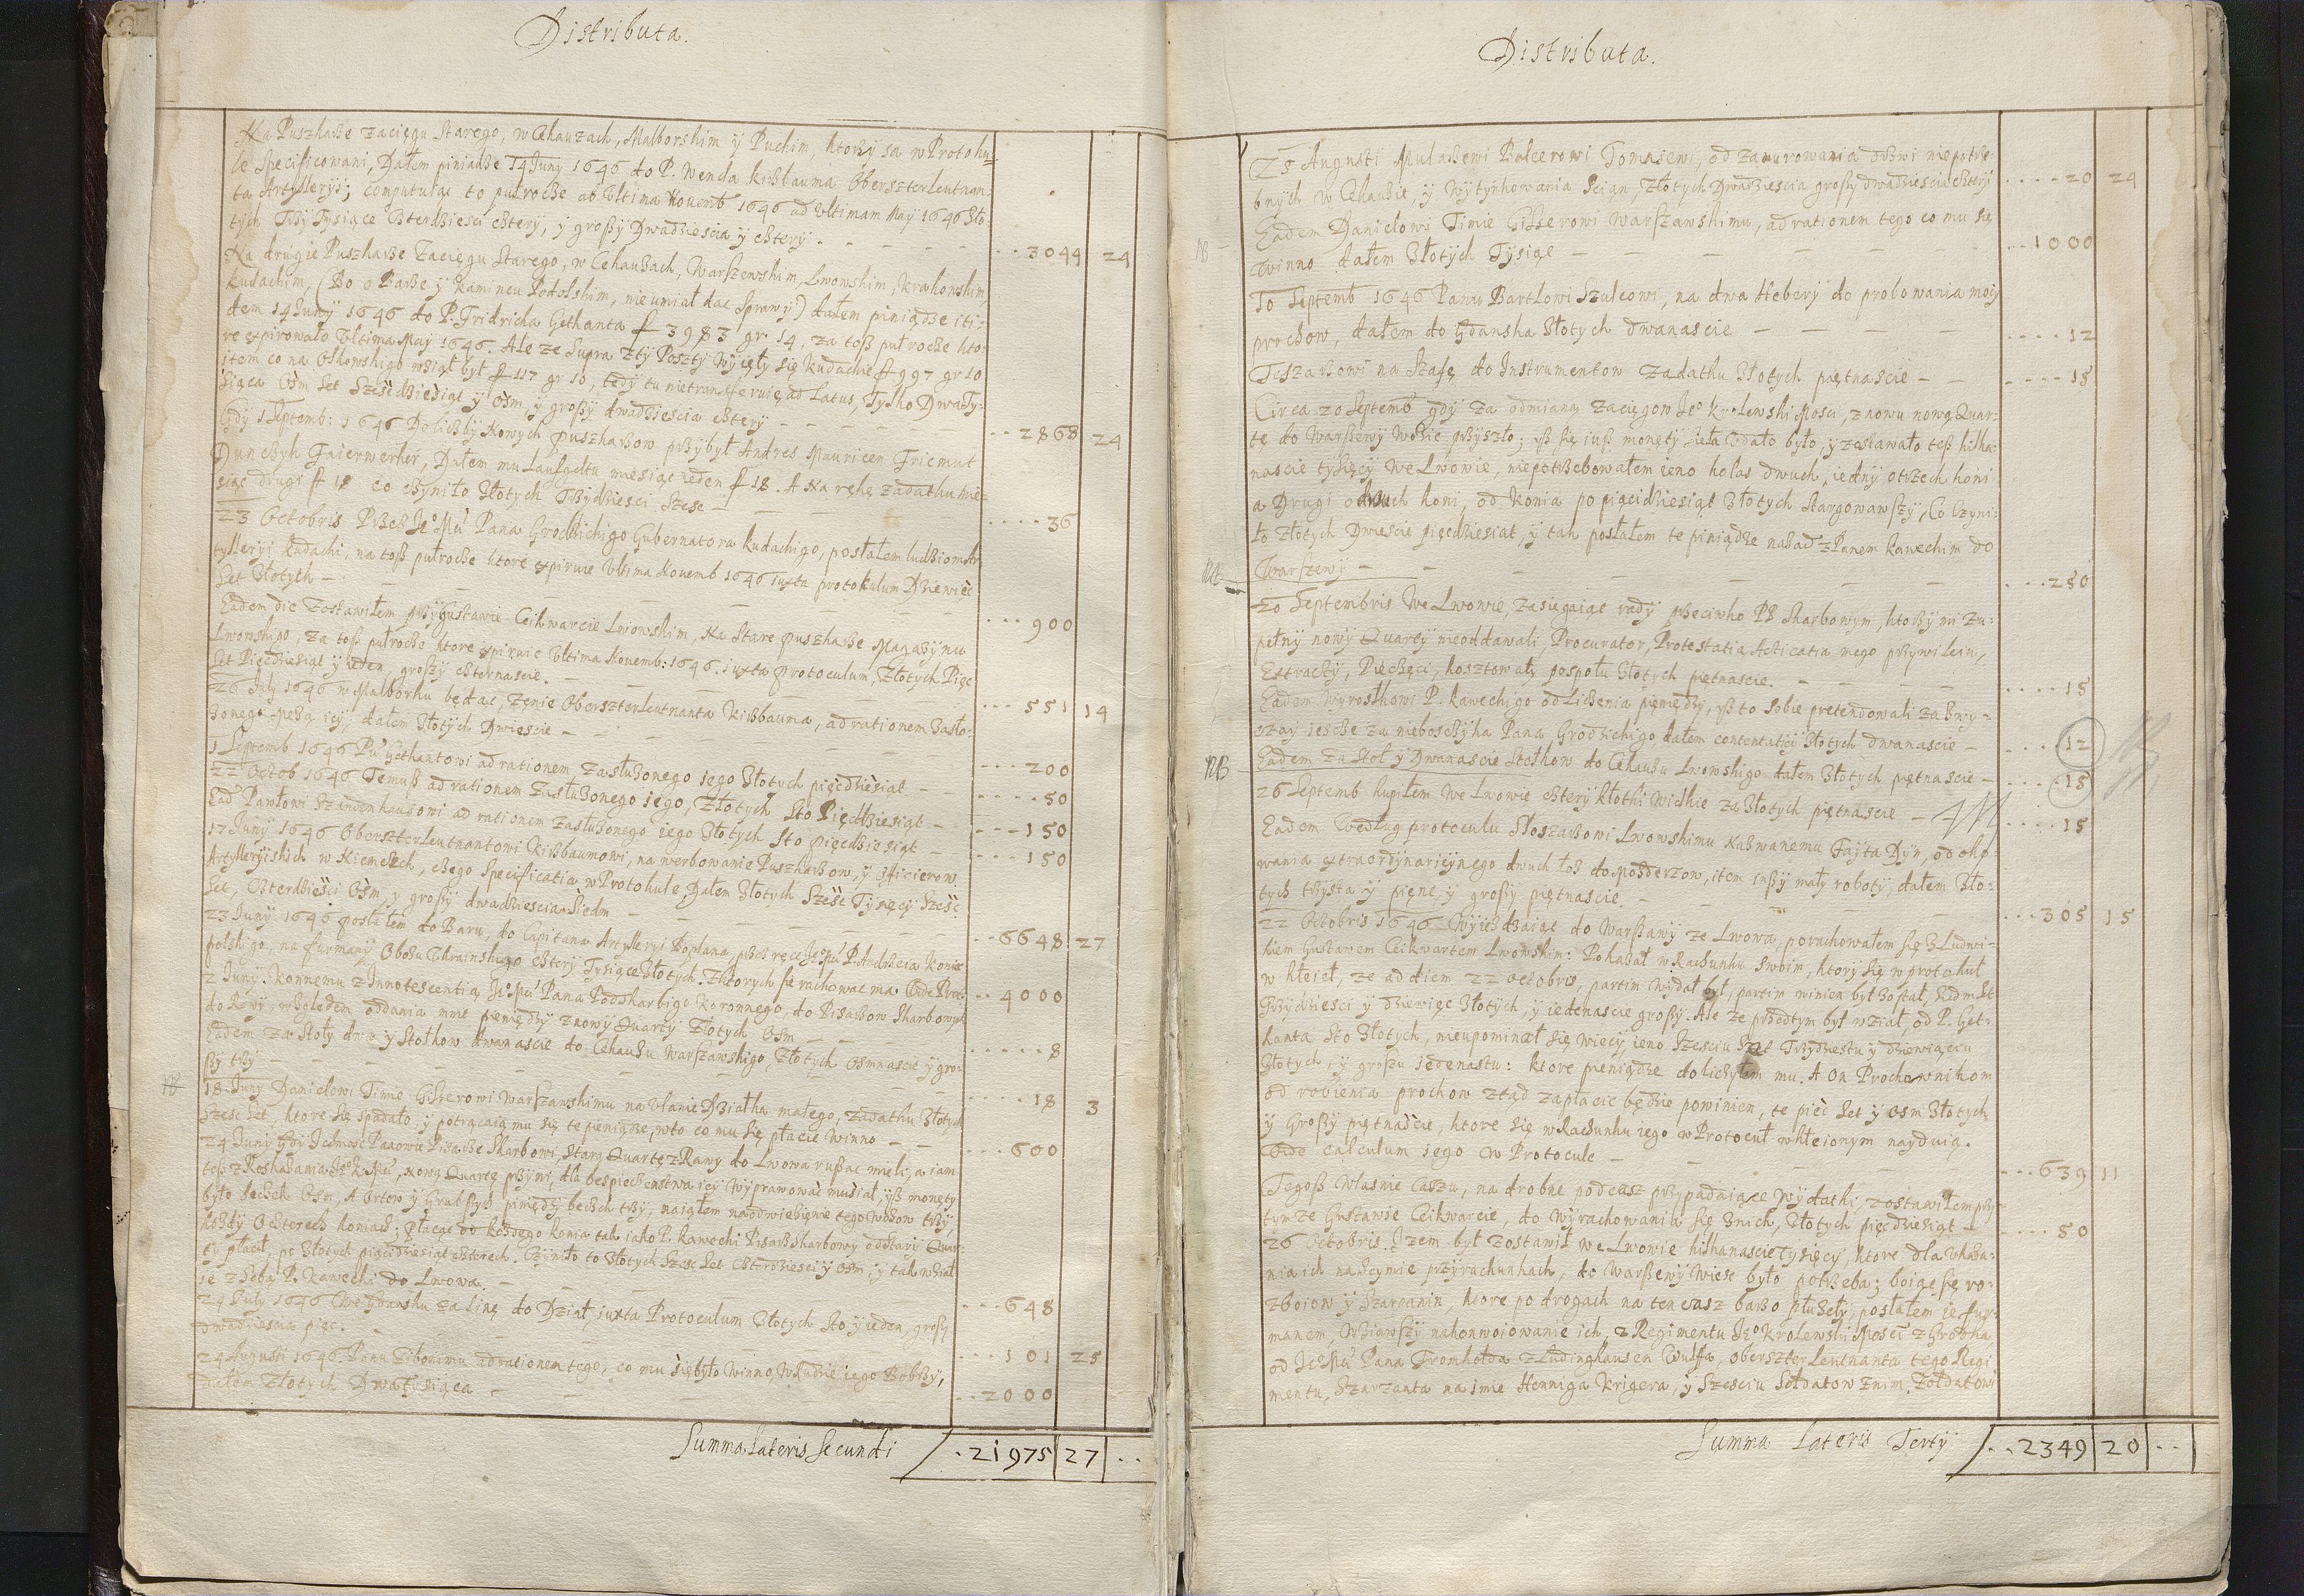 Distributa.
Na Puszkarze zacięgu Starego, w Cekauzach, Malborskim y Puckim, ktorzy są w Protoku=
le specificowani, Dałem piniądze 14 Juny 1646 do P. Wenda Kissbauma Oberszterleutnan
ta Artyllerÿi; computuiąc to pułrocze ab Ultima Novemb 1646 ad Ultimam May 1646 Zło
tych Trzy Tysiące Czterdziesci cztery, y groszy Dwadziescia y cztery. - - - ...3044 24
Na drugie Puszkarze Zaciegu Starego, w Cekauzach, Warszewskim, Lwowskim, Krakowskim,
Kudackim, (Bo o Barze y Kamincu Podolskim, nie umiał dac sprawy) dałem piniądze iti-
dem 14 Juny 1646 do P. Fridricha Gethanta f 3983 gr 14, za tosz pułrocze kto-
re expirowało Ultima May 1646. Ale ze supra z ty Poszty wyięły się Kudackie f 997 gr 10
item co na Olkowskigo wział był f 117 gr 10, tedy tu nie transferuię ad Latus, Tylko Dwa Ty-
siąca Osm Set Szescdziesiąt y Osm, y groszy dwadziescia cztery - - - ..2868 24
Gdy 1 Septemb: 1646 Do liczby Nowych puszkarzow przybył Andres Mauricen Friemut
Dunczyk Faierwerker, Dałem mu Laufgeltu miesiąc ieden f 18. A Na rękę zadatku mie-
siąc drugi f 18 co czyniło Złotych Trzydziesci szesc - - - ....36
23 Octobris Przez Je° Mci Pana Grodzickigo Gubernatora Kudackigo, posłałem ludziom Ar
tylleryi Kudacki, na tosz pułrocze ktore expiruie Ultima Novemb 1646 iuxta protokulum Dziewięc
Set Złotych - - - ...900
Eadem die zostawiłem przy Gustawie Ceikwarcie Lwowskim, Na Stare puszkarze Magazynu
Lwowskigo, za tosz pułrocze ktore expiruie Ultima Novemb: 1646. iuxta protoculum, Złotych Pięc
Set Pięcdziesiąt y ieden, groszy czternascie. - - - ...551 14
26 July 1646 w Malborku będąc, Zenie Oberszterleutnanta Kissbauma, ad rationem zasłu-
zonego męza iey, dałem Złotych Dwiescie - - - ...200
1 Septemb 1646 Pu Gethantowi ad rationem zasłuzonego iego Złotych pięcdziesiąt - ....50
22 Octob 1646 Temusz ad rationem zasłuzonego iego, Złotych Sto Pięcdziesiąt - ...150
Ead Pawłowi Szandenhauzowi ad rationem zasłuzonego iego Złotych Sto pięcdziesiąt - ...150
17 Juny 1646 Oberszterleutnantowi Kissbaumowi, na werbowanie Puszkarzow, y Officierow
Artylleryiskich w Niemczech, czego Specificatia w Protokule, Dałem Złotych Szesc Tysięcy Szesc
Set, Czterdziesci Osm, y groszy dwadziescia Siedm - - - ..6648 27
23 Juny 1646 posłałem do Baru, do Capitana Artylleryi Boplana, przez ręce Je° Mci P. Andrzeia Koniec
polskigo, na furmany Obozu Ukrainskiego cztery Tysiące Złotych. z ktorych się rachowac ma. Vide Prot: ..4000
2 Juny. Konnemu z Innotescentią Je° Mci Pana Podskarbigo Koronnego, do Pisarzow Skarbowych
do Rawy, względem oddania mnie pieniędzy z nowy Quarty Złotych Osm - - .....8
Eadem za Stoły dwa y Stołkow dwanascie do Cekauzu Warszawskigo, Złotych osmnascie y gro-
szy trzy - - - ....18 3
NB
18 Juny Danielowi Timie Gisserowi Warszawskimu na Ulanie Działka małego, zadatku Złotych
Szesc Set, ktore się spadało, y potrącaią mu się te pieniądze, w to co mu się płacic winno - - ...600
24 Juny Gdy Ichmosc Panowie Pisarze Skarbowi, Starą Quartę z Rawy do Lwowa ruszac mieli, a iam
tesz z Roskazania Je° K. Mci, nową Quartę przy ni, dla bespieczenstwa iey wyprawowac musiał, ysz monety
było beczek Osm, A Ortow y Grubszych piniędzy beczek trzy, naiąłem na odwiezienie tego Wozow trzy,
kozdy o czterech koniach; płacąc od kozdego konia tak iako P. Kawecki Pisarz skarbowy od stary Quar-
ty płacił, po Złotych pięcidziesiąt czterech. Czyniło to Złotych Szesc Set czterdziesci y Osm, y tak wział
ie z Sobą P. Kawecki do Lwowa - - ...648
24 July 1646 We Gdansku za linę do Dział, iuxta Protoculum Złotych sto y ieden, groszy
dwadziescia pięc. - - ...101 25
24 Augusti 1646. Panu Tiboniemu ad rationem tego, co mu się było winno, w Rudzie iego Bobrzy,
dałem Złotych Dwa tysiąca - - ..2000
Summa Lateris Secundi ..21975 27 ..
Distributa.
25 Augusti Mularzewi Balcerowi Tomasewi, od zamurowania drzwi niepotrze-
bnych w Cekauzie, y wytynkowania Scian, Złotych Dwadziescia groszy dwadziescia cztery ....20 24
NB
Eadem Danielowi Timie Gisserowi Warszawskimu, ad rationem tego co mu się
winno dałem Złotych Tysiąc - - - ..1000
10 Septemb 1646 Panu Bartlowi Szulcowi, na dwa Hebery do probowania moiy
prochow, dałem do Gdanska Złotych dwanascie - - - ....12
Teszarzowi na Szafę do Instrumentow Zadatku Złotych piętnascie - - ....15
Circa 20 Septemb gdy za odmianą zaciegow Je° Krolewski Mosci, znowu nową Quar-
tę do Warszewy wozic przyszło; ysz się iusz monety siełą wydało było, y zostawało tesz kilka-
nascie tysięcy we Lwowie, niepotrzebowałem ieno kolas dwuch, iedny o trzech koni
a Drugi o dwuch koni, od Konia po pięcidziesiąt Złotych stargowawszy, Co czyni-
ło Złotych Dwiescie pięcdziesiąt, y tak posłałem te piniądze nazad z Panem Kaweckim do
Warszewy - - - ...250
NB
20 Septembris We Lwowie, zasięgaiąc rady przeciwko PP Skarbowym, ktorzy mi zu-
pełny nowy Quarty nieoddawali, Procurator, Protestatia, Acticatia nego przywileiu,
Extrackty, Pieczęci, kosztowały pospołu Złotych piętnascie. - - ....15
Eadem Wyrostkowi P. Kaweckigo od Liczenia pieniędzy, ysz to sobie pretendowali za zwy-
czay iescze za nieboszczyka Pana Grodzickigo, dałem contentatiey Złotych dwanascie - ....12
NB
Eadem za Stoł y Dwanascie Stołkow do Cekauzu Lwowskigo dałem Złotych piętnascie - ....15
26 Septemb kupiłem we Lwowie cztery kłotki wielkie za Złotych piętnascie - ....15
Eadem Według protocułu Sloszarzowi Lwowskimu Nazwanemu Fayta Dyn, od oko-
wania extraordynaryinego dwuch łoz do Mozderzow, item inszy mały roboty, dałem Zło-
tych trzysta y pięnc, y groszy piętnascie. - - - ...305 15
22 Octobris 1646. Wyiezdzaiąc do Warszawy ze Lwowa, porachowałem się z Ludwi-
kiem Gustawem Ceikwartem Lwowskim: Pokazał w Rachunku swoim, ktory się w protokuł
w kleieł, ze ad diem 22 octobris, partim wydał był, partim winien był został, Siedm Set
Trzydziesci y dziewięc Złotych, y iedenascie groszy. Ale ze przedtym był wział, od P. Get-
kanta Sto Złotych, nieupominał się więcy, ieno Szesciu Set Trzydziestu y dziewiąciu
Złotych, y groszu iedenastu: ktore pieniądze doliczyłem mu. A on Prochownikom
od robienia prochow ztąd zapłacic będzie powinien, te pięc Set y osm Złotych
y Groszy piętnascie, ktore się w Rachunku iego w Protocuł wkleionym nayduią.
Vide calculum iego w Protocule - - - ...639 11
Tegosz własnie Czasu, na drobne podczasz przypadaiące wydatki, zostawiłem przy
tymze Gustawie Ceikwarcie, do wyrachowania się znich, Złotych pięcdziesiąt - ....50
26 Octobris. Izem był zostawił we Lwowie kilkanascie Tysięcy, ktore dla Ukaza-
nia ich na Seymie przy rachunkach, do Warszewy wiesc było potrzeba; boiąc się ro-
zboiow y Szarpanin, ktore po drogach na ten czasz barzo słuzeły, posłałem ie fur-
manem, Wziawszy na konwoiowanie ich, z Regimentu Je° Krolewski Mosci z Grodka
od Je° Mci Pana Fromholda z Ludinghausen Wulffa, Oberszterleutnanta tego Regi
mentu, Szarzanta na imie Henniga Krigera, y Szesciu Soldatow z nim. Zołdatowi
Summa Lateris Tertÿ ..2349 20 ..